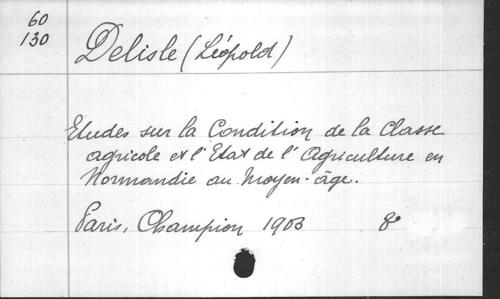 60
130
Delisle (Léopold)
Etudes sur la Condition de la Classe
agricole et l'Etat de l'Agriculture en
Normandie au Moyen-âge.
Paris, Champion 1903 8°